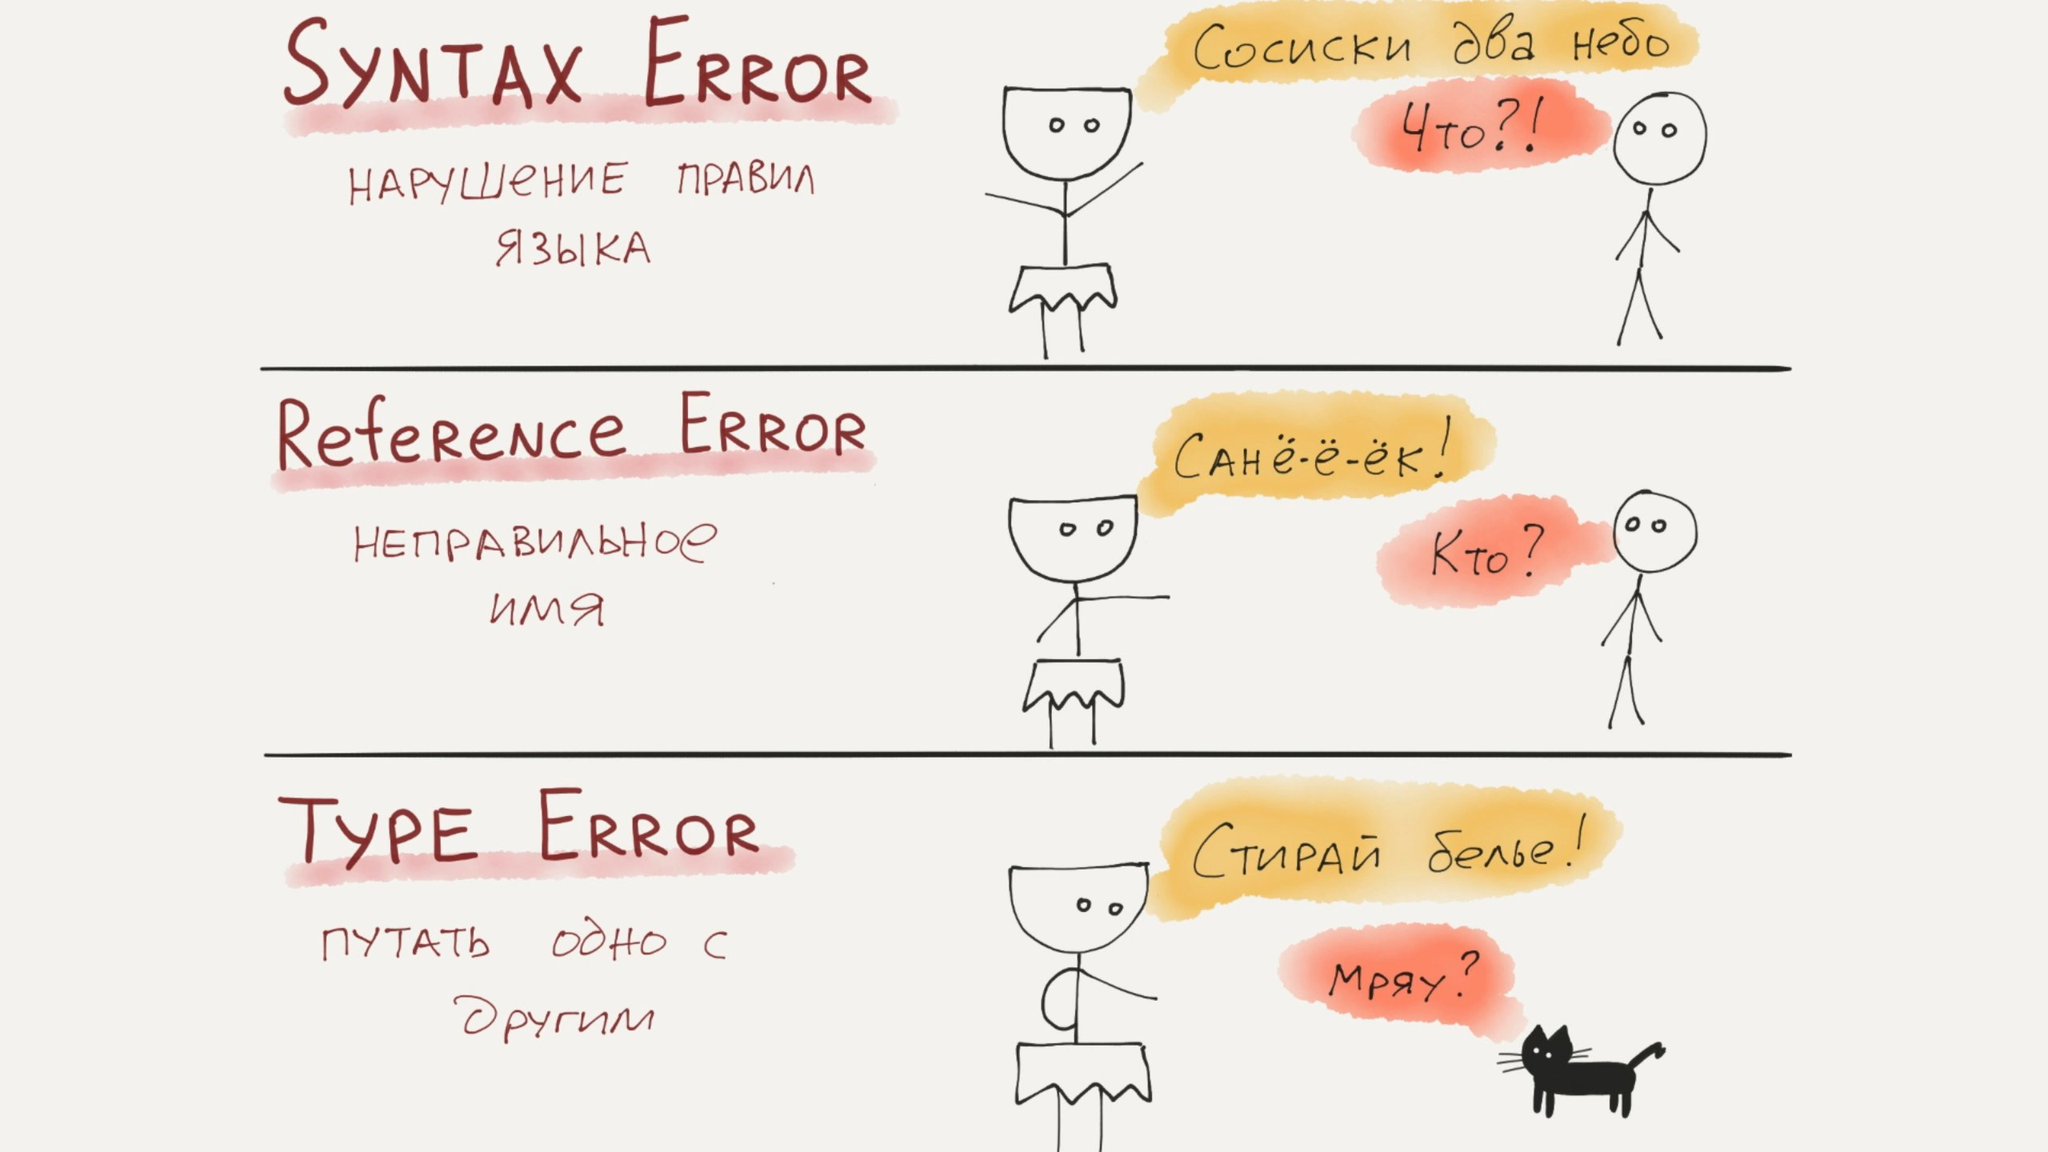 SYNTAX ERROR
НАРУШЕНИЕ ПРАВИЛ
ЯЗЫКА
Сосиски два небо
Что?!
Reference Error
НЕПРАВИЛЬНОЕ
ИМЯ
Санё-ё-ёк!
Кто?
TYPE ERROR
ПУТАТЬ ОДНО С
ДРУГИМ
Стирай белье!
Мряу?